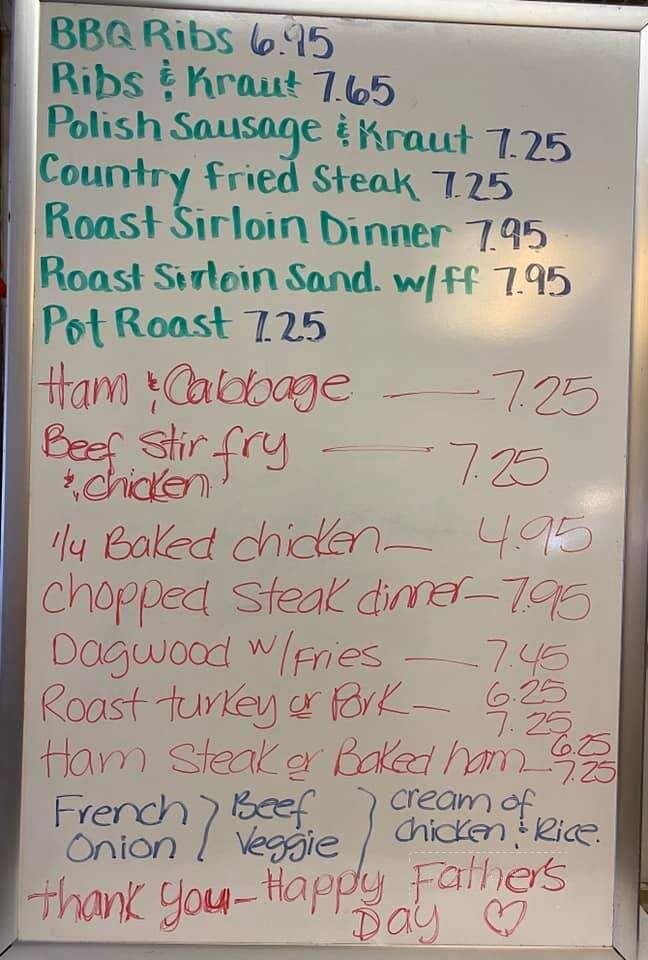 BBQ Ribs 6.95
Ribs & Kraut 7.65
Polish Sausage & Kraut 7.25
Country Fried Steak 7.25
Roast Sirloin Dinner 7.95
Roast Sirloin Sand. w/ff 7.95
Pot Roast 7.25
Ham & Cabbage — 7.25
Beef Stir fry — 7.25
& chicken
1/4 Baked chicken — 4.95
Chopped Steak dinner — 7.95
Dagwood w/Fries — 7.45
Roast turkey or Pork — 6.25
7.25
Ham Steak or Baked ham — 6.25
7.25
French Onion / Beef Veggie / cream of chicken & Rice.
thank you - Happy Father's
Day ♡